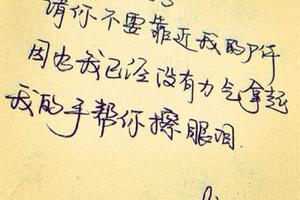 请你不要靠近我的
因为我已经没有力气拿起
我的手帮你擦眼泪